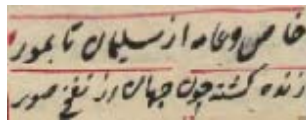 خاص و عامه از سلیمان تا بمور
زنده کشته چون جهان از نفخ صور